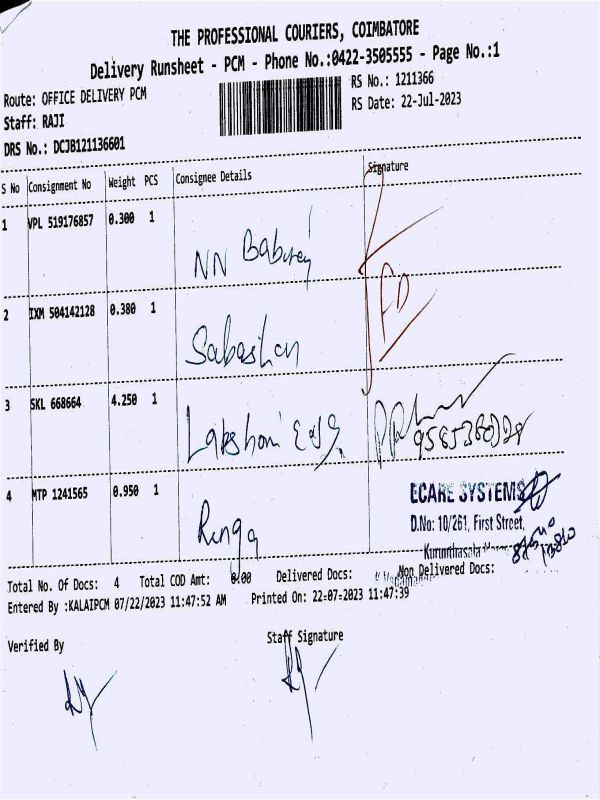 THE PROFESSIONAL COURIERS, COIMBATORE
Delivery Runsheet - PCM - Phone No.:0422-3505555 - Page No.:1
Route: OFFICE DELIVERY PCM
RS No.: 1211366
Staff: RAJI
RS Date: 22-Jul-2023
DRS No.: DCJB121136601
S No Consignment No Weight PCS Consignee Details Signature
1 VPL 519176857 0.300 1
NN Baburaj
2 IXM 504142128 0.380 1
FD
Sabasthan
3 SKL 668664 4.250 1
Lakshmi
4 MTP 1241565 0.950 1
Renga
ECARE SYSTEMS
D.No: 10/261, First Street,
Total No. Of Docs: 4 Total COD Amt: 0.00 Delivered Docs: Non Delivered Docs:
Entered By :KALAIPCM 07/22/2023 11:47:52 AM Printed On: 22-07-2023 11:47:39
Verified By Staff Signature